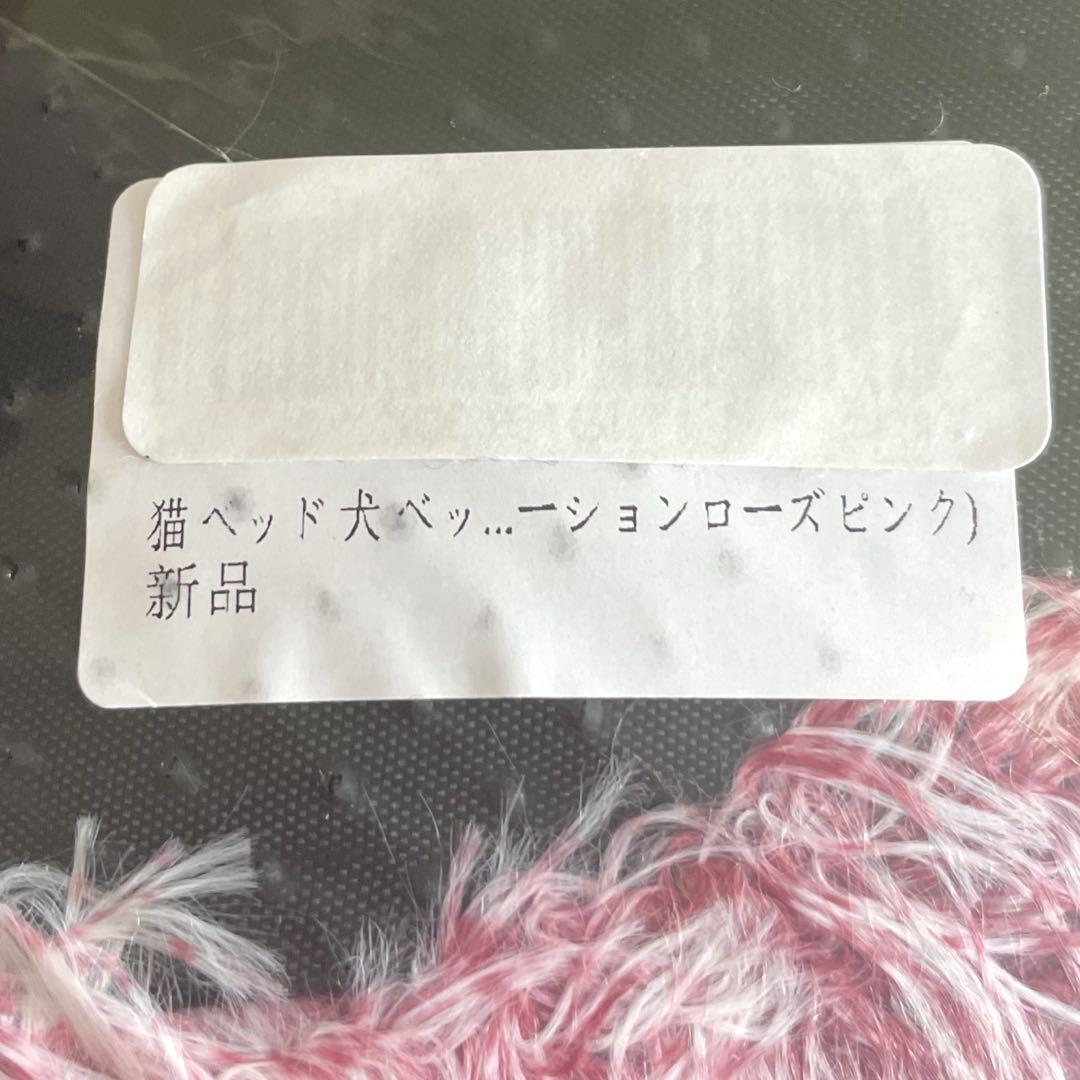 猫ベッド犬ベッ...ーションローズピンク)
新品